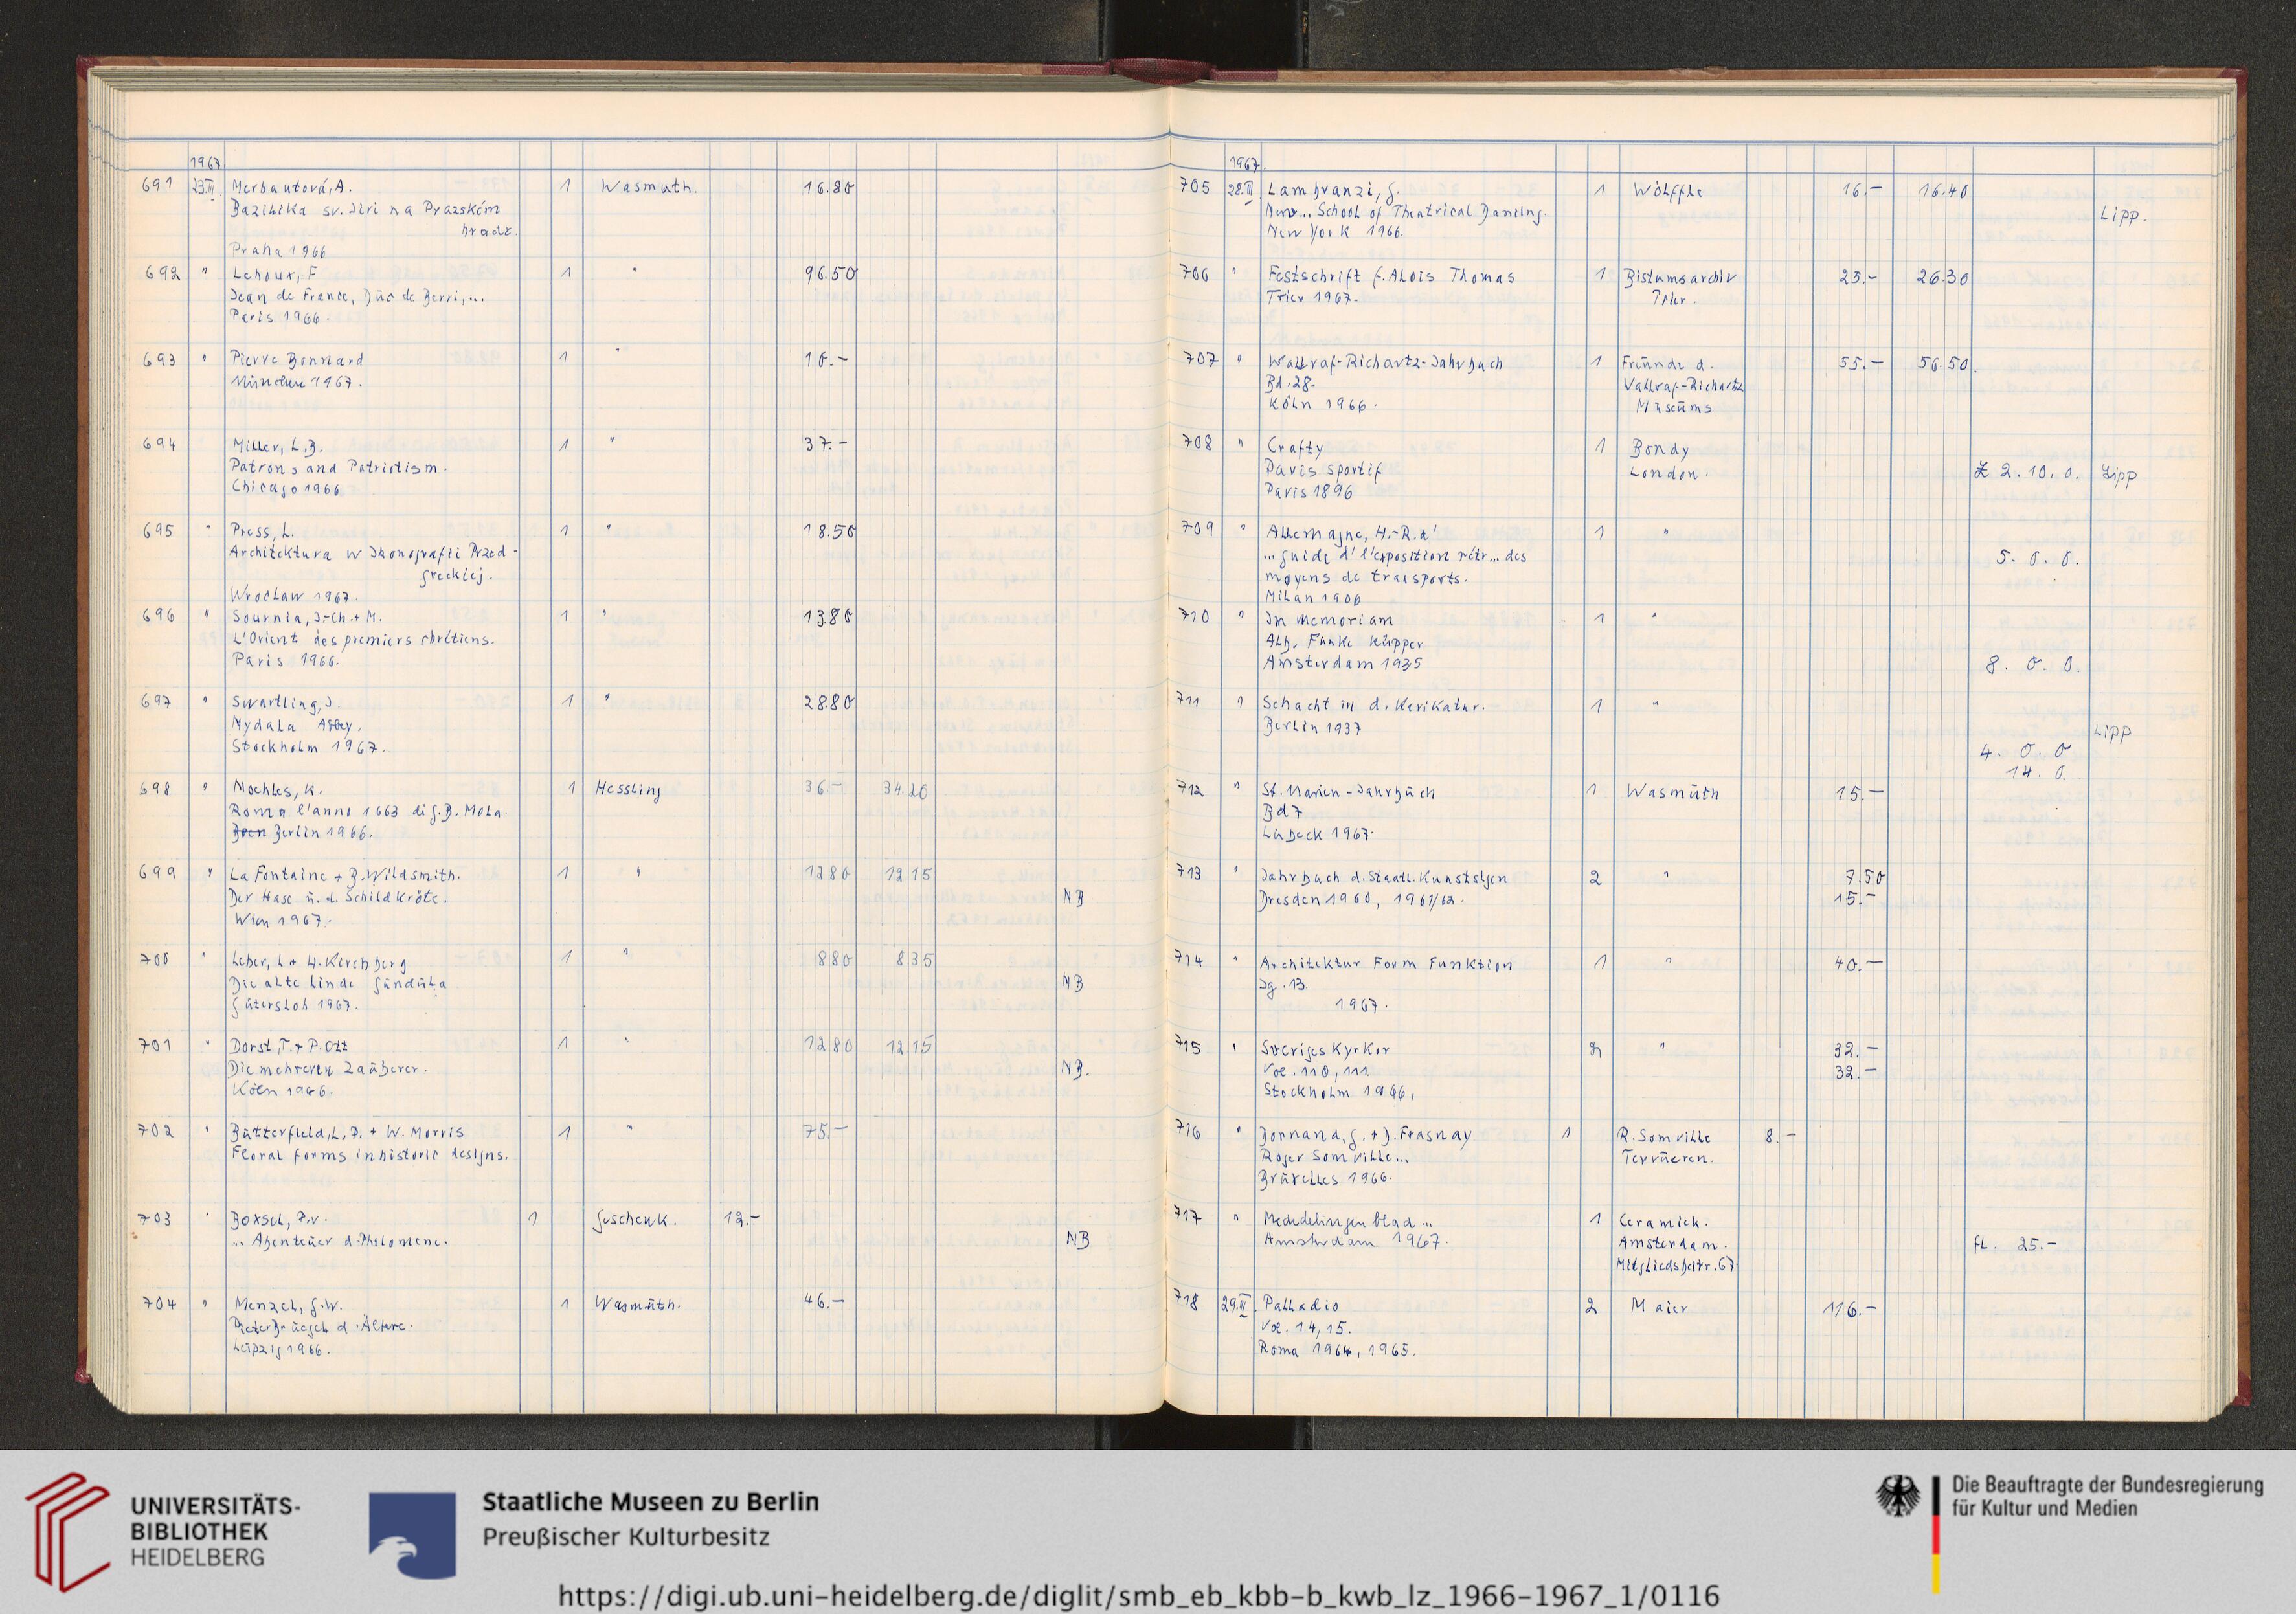 1967.
691 23.III. Merhautová, A. 1 Wasmuth. 16.80
Bazilika sv. Jiri na Prazském
hrade.
Praha 1966
692 " Lehoux, F 1 " 96.50
Jean de France, Duc de Berri,...
Paris 1966.
693 " Pierre Bonnard 1 " 10.-
München 1967.
694 " Miller, L.B. 1 " 37.-
Patrons and Patriotism.
Chicago 1966
695 " Press, L. 1 " 18.50
Architektura w Ikonografii Przed-
greckiej.
Wroclaw 1967.
696 " Sournia, J.-Ch. + M. 1 " 13.80
L'Orient des premiers chrétiens.
Paris 1966.
697 " Swartling, J. 1 " 28.80
Nydala Abbey.
Stockholm 1967.
698 " Noehles, K. 1 Hessling 36.- 34.20
Roma l'anno 1663 di G.B. Mola.
Berlin 1966.
699 " La Fontaine + B. Wildsmith. 1 " 12 80 12 15
Der Hase u. d. Schildkröte. NB
Wien 1967.
700 " Leher, L + H. Kirchberg 1 " 8 80 8 35
Die alte Linde Gundula NB
Gütersloh 1967.
701 " Dorst, T. + P. Ott 1 " 12 80 12 15
Die mehreren Zauberer. NB.
Köln 1966.
702 " Butterfield, L.P. + W. Morris 1 " 75.-
Floral forms in historic designs.
703 " Boxsel, P.v. 1 Geschenk. 12.-
... Abenteuer d. Philomene. NB
704 " Menzel, G.W. 1 Wasmuth. 46.-
Pieter Bruegel d. Ältere.
Leipzig 1966.
1967.
705 28.III Lambranzi, G. 1 Wölffle 16.- 16.40
New... School of Theatrical Dancing. Lipp.
New York 1966.
706 " Festschrift f. Alois Thomas 1 Bistumsarchiv 25.- 26.30
Trier 1967. Trier.
707 " Wallraf-Richartz-Jahrbuch 1 Freunde d. 55.- 56.50.
Bd. 28. Wallraf-Richartz
Köln 1966. Museums
708 " Crafty 1 Bondy
Paris sportif London. £ 2.10.0. Lipp
Paris 1896
709 " Allemagne, H.-R. d' 1 "
... guide d' l'exposition rétr... des 5. 0. 0.
moyens de transports.
Milan 1906
710 " In memoriam 1 "
Alb. Funke Küpper
Amsterdam 1935 8. 0. 0.
711 " Schacht in d. Karikatur. 1 "
Berlin 1937 Lipp
4. 0. 0
14. 0.
712 " St. Marien-Jahrbuch 1 Wasmuth 15.-
Bd 7
Lübeck 1967.
713 " Jahrbuch d. Staatl. Kunstslgen 2 " 7.50
Dresden 1960, 1961/62. 15.-
714 " Architektur Form Funktion 1 " 40.-
Jg. 13.
1967.
715 " Sveriges Kyrkor 2 " 32.-
Vol. 110, 111 32.-
Stockholm 1966,
716 " Dornand, G. + J. Frasnay 1 R. Somville 8.-
Roger Somville... Tervueren.
Bruxelles 1966.
717 " Mededelingenblad... 1 Ceramiek.
Amsterdam 1967. Amsterdam. fl. 25.-
Mitgliedsbeitr. 67.
718 29.III. Palladio 2 Maier 116.-
Vol. 14, 15.
Roma 1964, 1965.
UNIVERSITÄTS-
BIBLIOTHEK
HEIDELBERG
Staatliche Museen zu Berlin
Preußischer Kulturbesitz
Die Beauftragte der Bundesregierung
für Kultur und Medien
https://digi.ub.uni-heidelberg.de/diglit/smb_eb_kbb-b_kwb_lz_1966-1967_1/0116